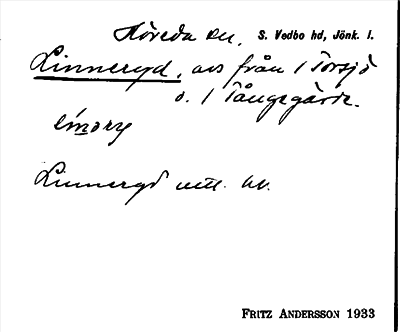 Höreda sn. S. Vedbo hd, Jönk. l.
Linneryd, avs från 1 Torsjö
o. 1 Tångagärde.
Linneryd utt. av.
FRITZ ANDERSSON 1933